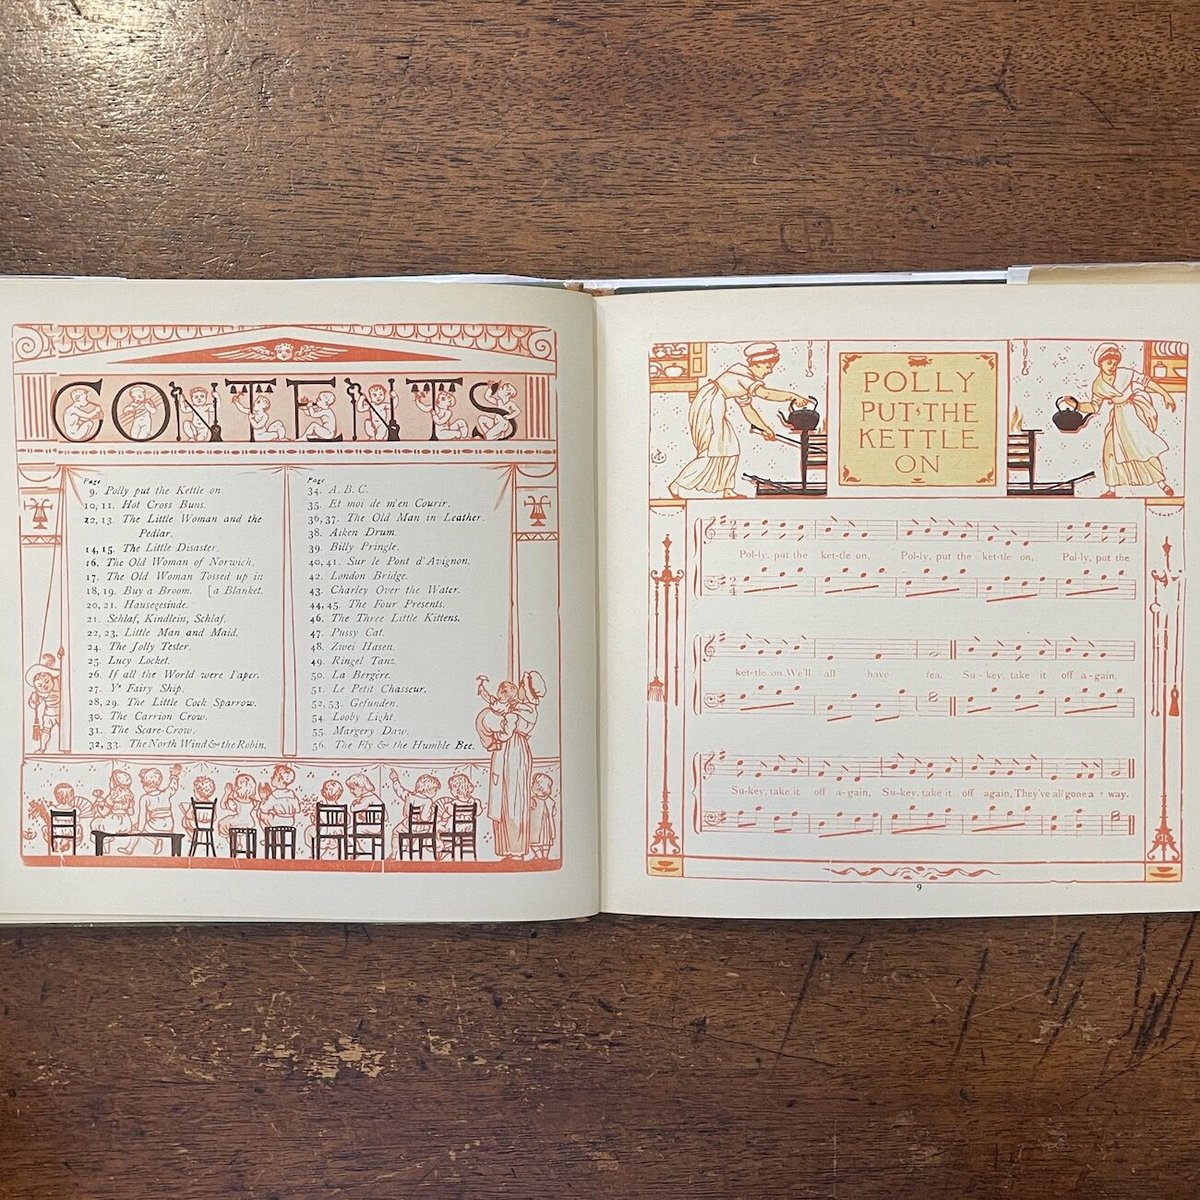 CONTENTS
Page
9. Polly put the Kettle on.
10, 11. Hot Cross Buns.
12, 13. The Little Woman and the
Pedlar.
14, 15. The Little Disaster.
16. The Old Woman of Norwich.
17. The Old Woman Tossed up in
18, 19. Buy a Broom. [a Blanket.
20, 21. Hausegesinde.
21. Schlaf, Kindlein, Schlaf.
22, 23. Little Man and Maid.
24. The Jolly Tester.
25. Lucy Locket.
26. If all the World were Paper.
27. Ye Fairy Ship.
28, 29. The Little Cock Sparrow.
30. The Carrion Crow.
31. The Scare-Crow.
32, 33. The North Wind & the Robin.
Page
34. A. B. C.
35. Et moi de m'en Courir.
36, 37. The Old Man in Leather.
38. Aiken Drum.
39. Billy Pringle.
40, 41. Sur le Pont d'Avignon.
42. London Bridge.
43. Charley Over the Water.
44, 45. The Four Presents.
46. The Three Little Kittens.
47. Pussy Cat.
48. Zwei Hasen.
49. Ringel Tanz.
50. La Bergère.
51. Le Petit Chasseur.
52, 53. Gefunden.
54. Looby Light.
55. Margery Daw.
56. The Fly & the Humble Bee.
POLLY
PUT THE
KETTLE
ON
Pol-ly, put the ket-tle on, Pol-ly, put the ket-tle on, Pol-ly, put the
ket-tle on We'll all have tea. Su-key, take it off a-gain,
Su-key, take it off a-gain, Su-key, take it off again, They've all gone a-way.
9